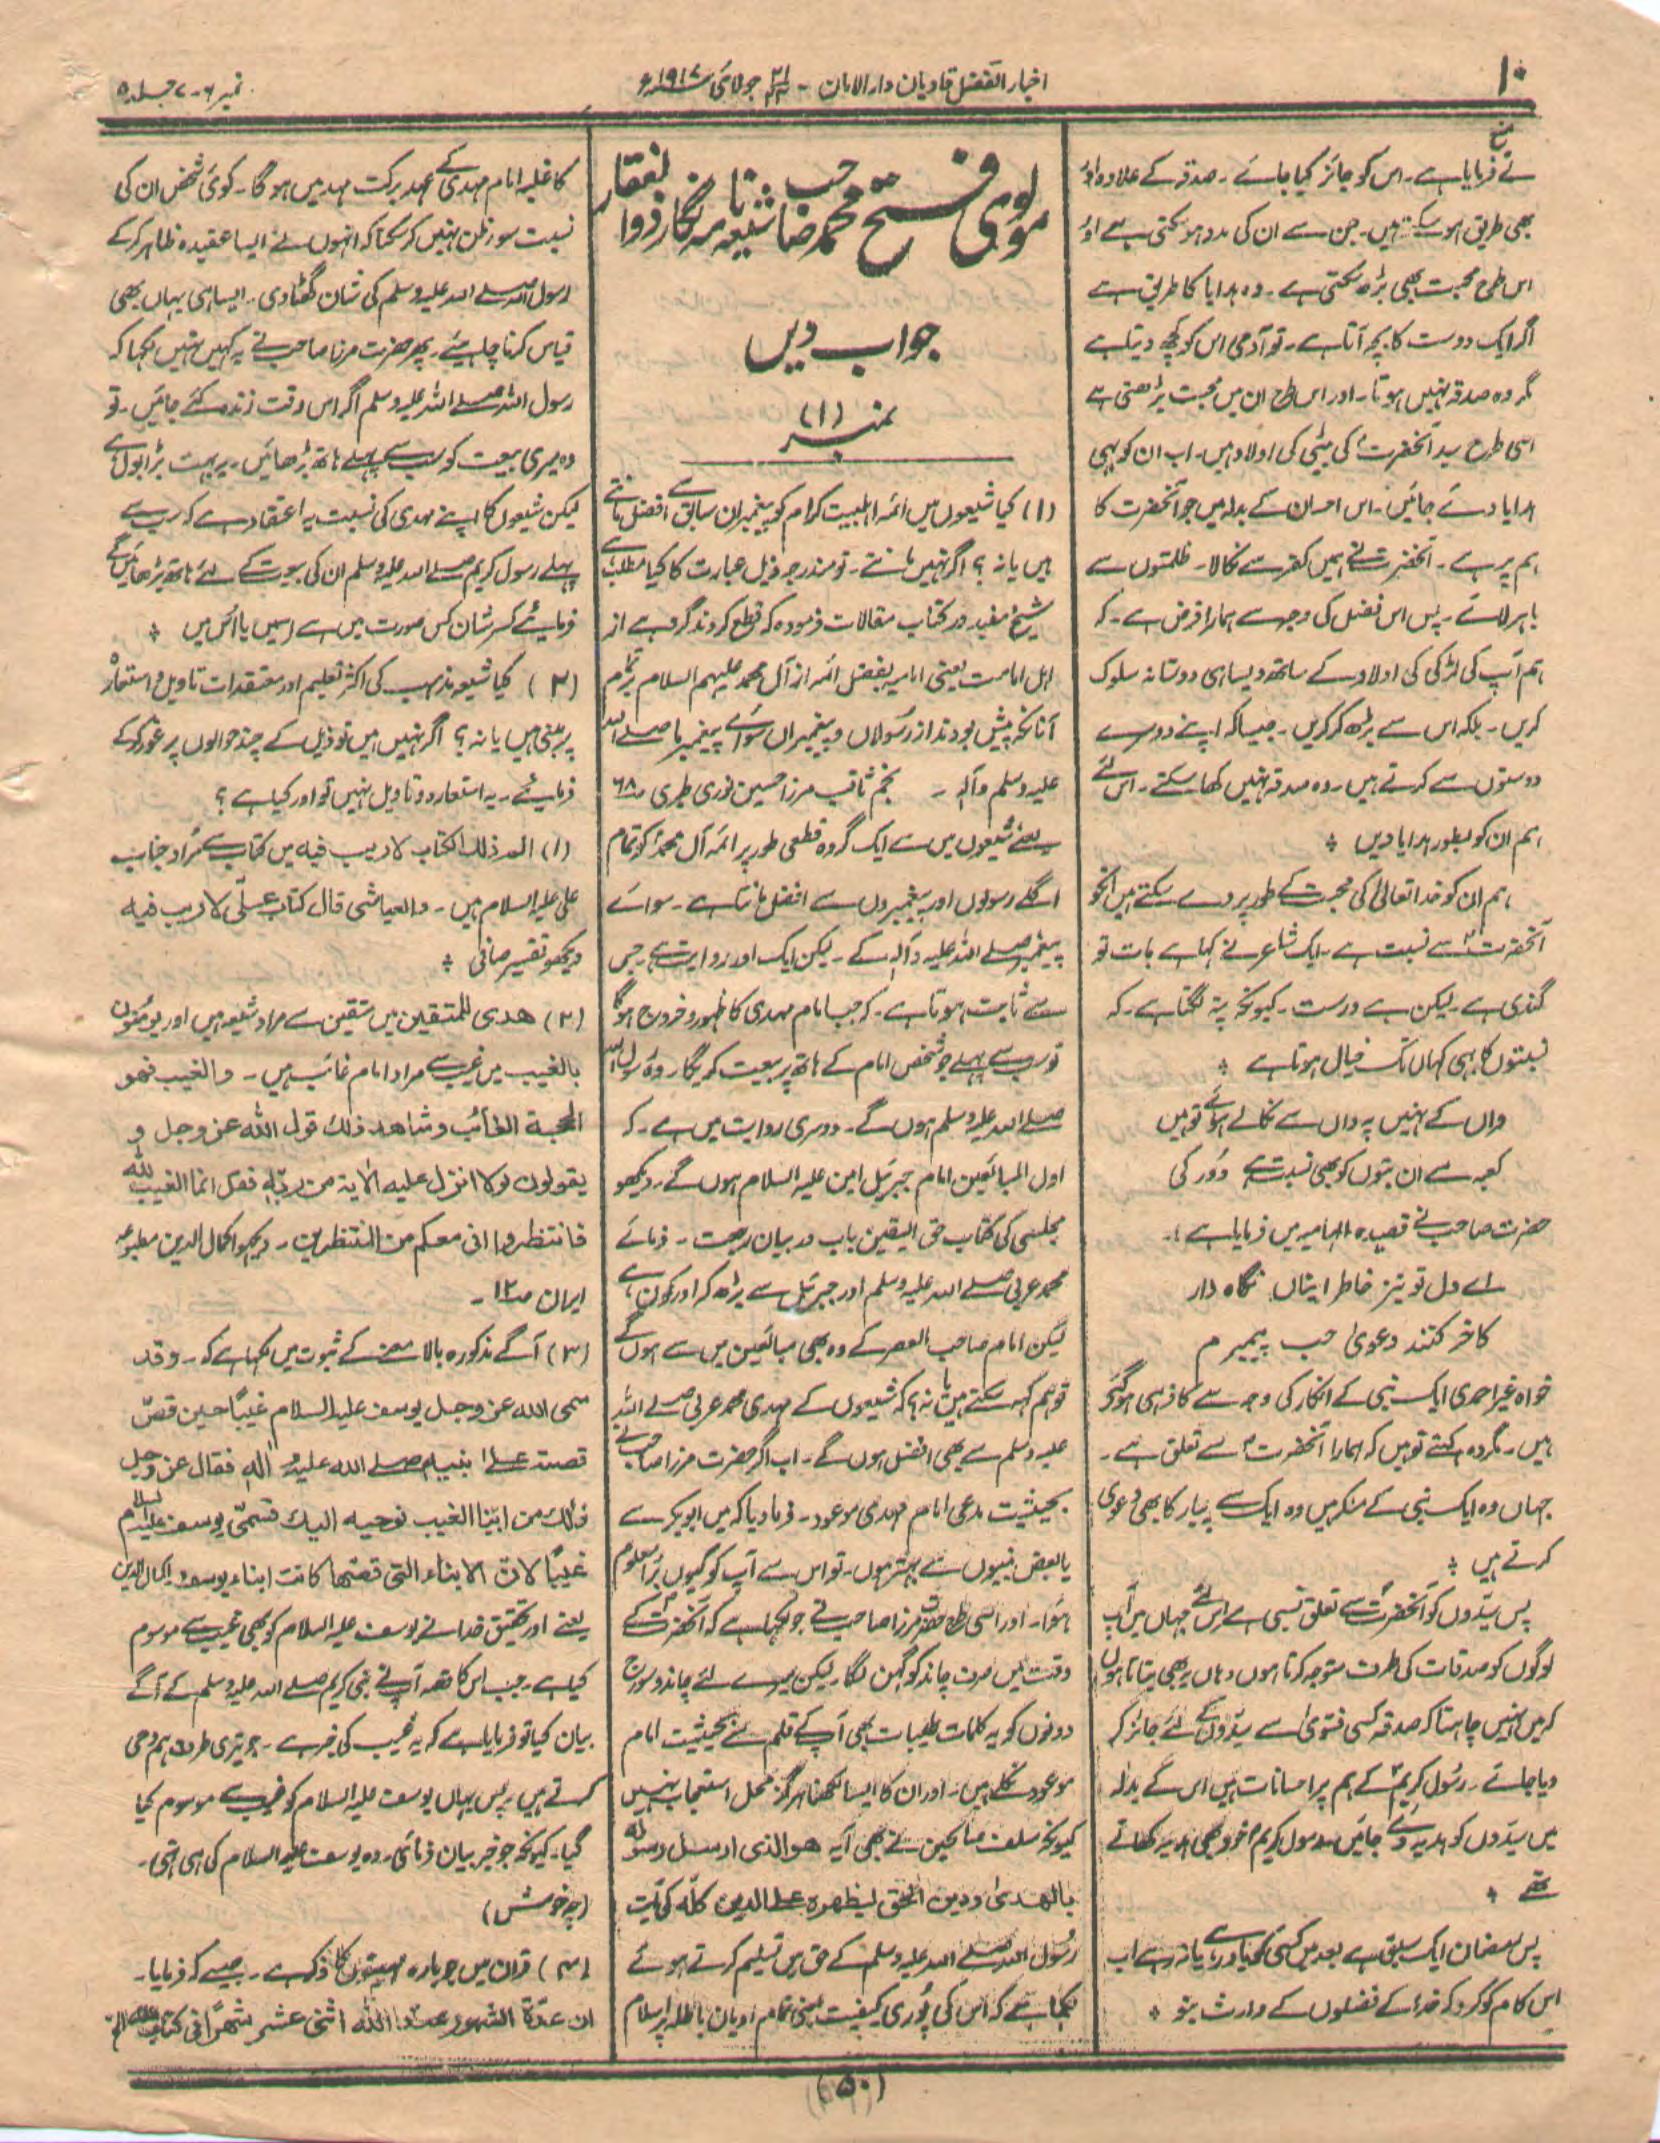 ۱۰
اخبار الفضل قادیان دار الامان - ۲۱/۲۴ جولائی ۱۹۱۷ء
نمبر ۶-۷ جلد ۵
نے فرمایا ہے۔ اس کو جائز کیا جائے۔ صدقہ کے علاوہ اور
بھی طریق ہو سکتے ہیں۔ جن سے ان کی مدد ہو سکتی ہے اور
اس طرح محبت بھی بڑھ سکتی ہے۔ وہ ہدایا کا طریق ہے
اگر ایک دوست کا بچہ آتا ہے۔ تو آدمی اس کو کچھ دیتا ہے
مگر وہ صدقہ نہیں ہوتا۔ اور اس طرح ان میں محبت بڑھتی ہے
اسی طرح سید آنحضرتؐ کی بیٹی کی اولاد ہیں۔ اب ان کو بھی
ہدایا دئے جائیں۔ اس احسان کے بدلہ میں جو آنحضرت کا
ہم پر ہے۔ آنحضرت نے ہمیں کفر سے نکالا۔ ظلمتوں سے
باہر لائے۔ پس اس فضل کی وجہ سے ہمارا فرض ہے۔ کہ
ہم آپ کی لڑکی کی اولاد کے ساتھ ویسا ہی دوستانہ سلوک
کریں۔ بلکہ اس سے بڑھ کر کریں۔ جیسا کہ اپنے دوسرے
دوستوں سے کرتے ہیں۔ وہ صدقہ نہیں کھا سکتے۔ اس لئے
ہم ان کو بطور ہدایا دیں ٭
ہم ان کو خدا تعالیٰ کی محبت کے طور پر دے سکتے ہیں انکو
آنحضرتؐ سے نسبت ہے۔ ایک شاعر نے کہا ہے بات تو
گندی ہے۔ لیکن ہے درست۔ کیونکہ پتہ لگتا ہے۔ کہ
نسبتوں کا بھی کہاں تک خیال ہوتا ہے ٭
واں کے نہیں پہ واں سے نکالے ہوئے تو ہیں
کعبہ سے ان بتوں کو بھی نسبت ہے دور کی
حضرت صاحب نے قصیدہ الہامیہ میں فرمایا ہے :۔
اے دل تو نیز خاطر ایناں نگاہ دار
کاخر کنند دعویٰ حب پیمبرم
خواہ غیر احمدی ایک نبی کے انکار کی وجہ سے کافر ہی ہو گئے
ہیں۔ مگر وہ کہتے تو ہیں کہ ہمارا آنحضرتؐ سے تعلق ہے۔
جہاں وہ ایک نبی کے منکر ہیں وہ ایک سے پیار کا بھی دعویٰ
کرتے ہیں ٭
پس سیّدوں کو آنحضرتؐ سے تعلق نسبی ہے اس لئے جہاں میں آپ
لوگوں کو صدقات کی طرف متوجہ کرتا ہوں وہاں یہ بھی بتاتا ہوں
کہ میں نہیں چاہتا کہ صدقہ کسی فتویٰ سے سیّدوں کے لئے جائز کر
دیا جائے۔ رسول کریمؐ کے ہم پر احسانات ہیں اس کے بدلہ
میں سیّدوں کو ہدیے دئے جائیں۔ رسول کریمؐ خود بھی ہدیہ کھاتے
تھے ٭
پس رمضان ایک سبق ہے بعد میں کسی کو یاد رہے یا نہ رہے اب
اس کام کو کرو کہ خدا کے فضلوں کے وارث بنو ٭
مولوی فتح محمد رضا صاحب شیعہ نامہ نگار ذوالفقار
جواب دیں
نمبر (۱)
(۱) کیا شیعوں میں ائمہ اہلبیت کرام کو پیغمبران سابق سے افضل مانتے
ہیں یا نہ؟ اگر نہیں مانتے۔ تو مندرجہ ذیل عبارت کا کیا مطلب ہے
شیخ مفید در کتاب مقالات فرمودہ کہ قطع کردند گروہے از
اہل امامت یعنی امامیہ بفضل ائمہ از آل محمد علیہم السلام بر تمام
آنانکہ پیش بودند از رسولاں و پیغمبراں سوائے پیغمبر ما صلے اللہ
علیہ وسلم و آلہ۔ نجم ثاقب مرزا حسین نوری طبری ص۶۸
یعنے شیعوں میں سے ایک گروہ قطعی طور پر ائمہ آل محمدؐ کو تمام
اگلے رسولوں اور پیغمبروں سے افضل مانتا ہے۔ سوائے
پیغمبر صلے اللہ علیہ وآلہ کے۔ لیکن ایک اور روایت ہے جس
سے ثابت ہوتا ہے۔ کہ جب امام مہدی کا ظہور و خروج ہوگا
تو سب سے پہلے جو شخص امام کے ہاتھ پر بیعت کریگا۔ وہ رسول اللہ
صلے اللہ علیہ وسلم ہوں گے۔ دوسری روایت میں ہے۔ کہ
اول المبائعین امام جبرئیل امین علیہ السلام ہوں گے۔ دیکھو
مجلسی کی کتاب حق الیقین باب در بیان رجعت۔ فرمائے
محمد عربی صلے اللہ علیہ وسلم اور جبرئیل سے بڑھ کر اور کون ہے
لیکن امام صاحب العصر کے وہ بھی مبائعین میں سے ہوں گے
تو ہم کہہ سکتے ہیں یا نہ؟ کہ شیعوں کے مہدی محمد عربی صلے اللہ
علیہ وسلم سے بھی افضل ہوں گے۔ اب اگر حضرت مرزا صاحب نے
بحیثیت مدعی امام مہدی موعود۔ فرما دیا کہ میں ابوبکر سے
یا بعض نبیوں سے بہتر ہوں۔ تو اس سے آپ کو کیوں بُرا معلوم
ہوا۔ اور اسی طرح حضرت مرزا صاحب نے جو لکھا ہے کہ آنحضرت کے
وقت میں صرف چاند کو گہن لگا۔ لیکن میرے لئے چاند و سورج
دونوں کو یہ کلمات طیبات بھی آپ کے قلم سے بحیثیت امام
موعود نکلے ہیں۔ اور ان کا ایسا لکھنا ہرگز محل استعجاب نہیں
کیونکہ سلف صالحین نے بھی آیہ هو الذی ارسل رسوله
بالهدیٰ ودین الحق لیظهره علی الدین کلّه کی آیت
رسول اللہ صلے اللہ علیہ وسلم کے حق میں تسلیم کرتے ہوئے
لکھا ہے کہ اس کی پوری کیفیت یعنی تمام ادیان باطلہ پر اسلام
کا غلبہ امام مہدی کے عہد برکت مہد میں ہوگا۔ کوئی شخص ان کی
نسبت سوء ظن نہیں کر سکتا کہ انہوں نے ایسا عقیدہ ظاہر کر کے
رسول اللہ صلے اللہ علیہ وسلم کی شان گھٹا دی۔ ایسا ہی یہاں بھی
قیاس کرنا چاہئیے۔ پھر حضرت مرزا صاحب نے یہ کہیں نہیں لکھا کہ
رسول اللہ صلے اللہ علیہ وسلم اگر اس وقت زندہ کئے جائیں۔ تو
وہ میری بیعت کو سب سے پہلے ہاتھ بڑھائیں۔ یہ بہت بڑا بول ہے
لیکن شیعوں کا اپنے مہدی کی نسبت یہ اعتقاد ہے کہ سب سے
پہلے رسول کریم صلے اللہ علیہ وسلم ان کی بیعت کے لئے ہاتھ بڑھائیں گے
فرمائیے کسر شان کس صورت میں ہے اس میں یا اُس میں ٭
(۲) کیا شیعہ مذہب کی اکثر تعلیم اور معتقدات تاویل و استعارہ
پر مبنی ہیں یا نہ؟ اگر نہیں ہیں تو ذیل کے چند حوالوں پر غور کر کے
فرمائیے۔ یہ استعارہ و تاویل نہیں تو اور کیا ہے؟
(۱) الم ذلك الكتاب لا ریب فیه میں کتاب سے مراد جناب
علی علیہ السلام ہیں۔ والعیاشی قال کتاب علّی لا ریب فیه
دیکھو تفسیر صافی ٭
(۲) هدی للمتقین میں متقین سے مراد شیعہ ہیں اور یومنون
بالغیب میں غیب سے مراد امام غائب ہیں۔ والغیب فهو
الحجة الغائب وشاهد ذلك قول الله عز وجل و
یقولون لولا انزل علیه الایة من ربّه فقل انما الغیب لله
فانتظروا انی معکم من المنتظرین۔ دیکھو اکمال الدین مطبوعہ
ایران ص۱۲۔
(۳) آگے مذکورہ بالا معنے کے ثبوت میں لکھا ہے کہ۔ وقد
سمی الله عز وجل یوسف علیه السلام غیبًا حین قصّ
قصته علیٰ نبیه صلے الله علیه واٰله فقال عز وجل
ذلك من انبآ الغیب نوحیه الیك فسمّٰی یوسف علیه السلام
غیبًا لانّ الانباء التی قصّها کانت انباء یوسف۔ اکمال الدین
یعنے اور تحقیق خدا نے یوسف علیہ السلام کو بھی غیب سے موسوم
کیا ہے۔ جب اس کا قصہ آپ نے نبی کریم صلے اللہ علیہ وسلم کے آگے
بیان کیا تو فرمایا ہے کہ یہ غیب کی خبر ہے۔ جو تیری طرف ہم وحی
کرتے ہیں۔ پس یہاں یوسف علیہ السلام کو غیب سے موسوم کیا
گیا۔ کیونکہ جو خبر بیان فرمائی۔ وہ یوسف علیہ السلام کی ہی تھی۔
(چہ خوش)
(۴) قرآن میں جو بارہ مہینوں کا ذکر ہے۔ جیسے کہ فرمایا۔
ان عدّة الشهور عند الله اثنی عشر شهرًا فی کتاب الله الخ
(۵۰)